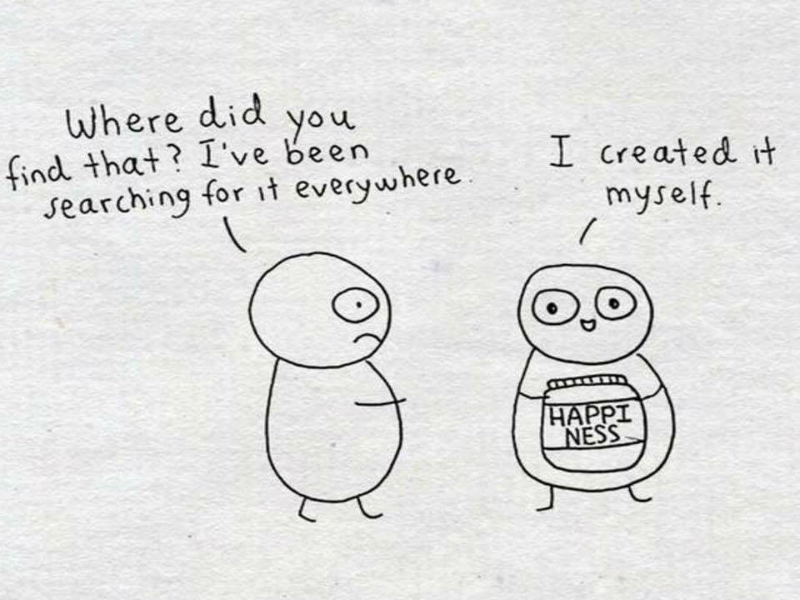 Where did you
find that? I've been
searching for it everywhere.
I created it
myself.
HAPPI
NESS